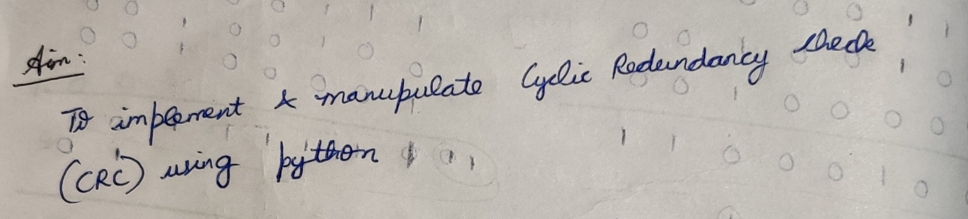 Aim:
To implement & manupulate Cyclic Redundancy check
(CRC) using python